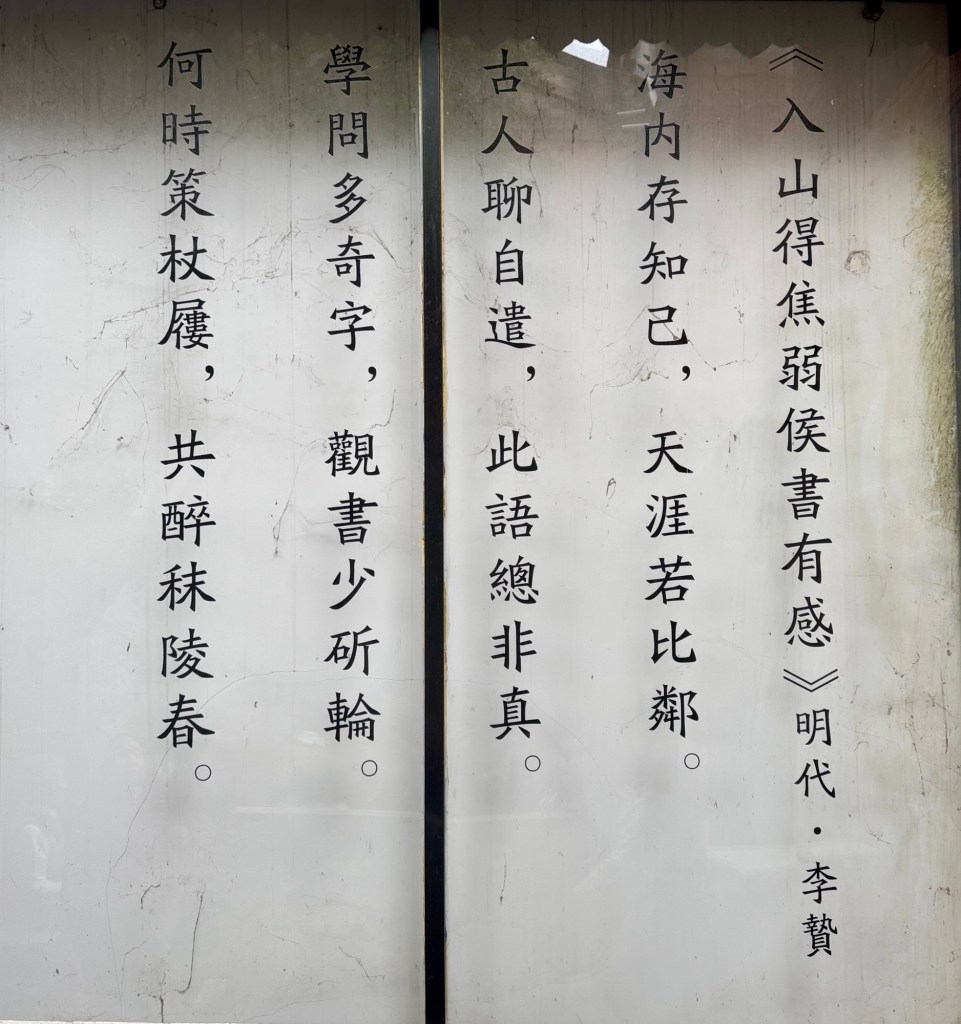 《入山得焦弱侯書有感》明代·李贄
海内存知己，天涯若比鄰。
古人聊自遣，此語總非真。
學問多奇字，觀書少斫輪。
何時策杖屨，共醉秣陵春。